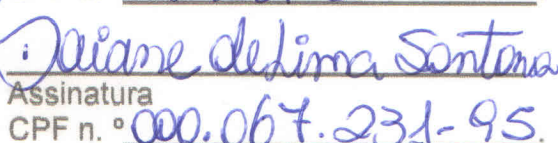 Daiane de Lima Santana
Assinatura
CPF n.º 000.067.231-95.